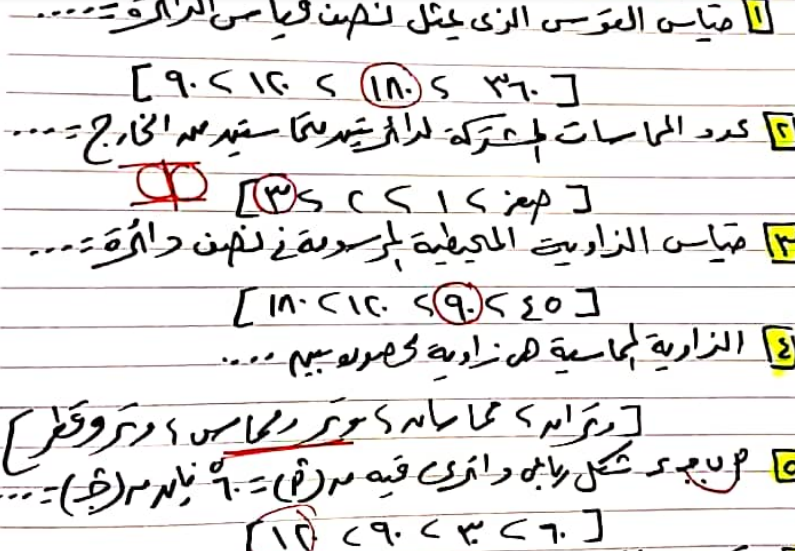 ١ قياس القوس الذى يمثل نصف قياس الدائرة = ....
[ ٣٦٠ ، ١٨٠ ، ١٢٠ ، ٩٠ ]
٢ عدد المماسات المشتركة لدائرتين متماستين من الخارج = ...
[ صفر ، ١ ، ٢ ، ٣ ]
٣ قياس الزاوية المحيطية المرسومة في نصف دائرة = ...
[ ٤٥ ، ٩٠ ، ١٢٠ ، ١٨٠ ]
٤ الزاوية المماسية هى زاوية محصورة بين ....
[ وتران ، مماسان ، وتر ومماس ، وتر وقطر ]
٥ ٢ ب جـ ء شكل رباعى دائرى فيه ق (٢) = ٦٠° فإن ق (جـ) = ...
[ ٦٠ ، ٣٠ ، ٩٠ ، ١٢٠ ]